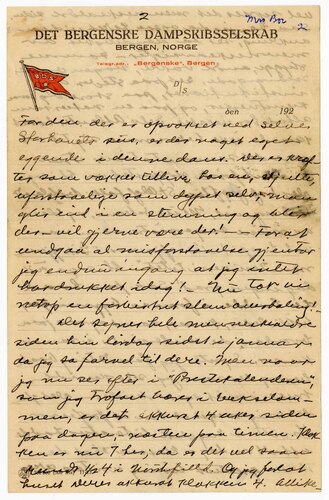 2
Mrs Boe
2
DET BERGENSKE DAMPSKIBSSELSKAB
BERGEN, NORGE
Telegr.adr.: „Bergenske“, Bergen.
B.D.S.
D/S
den 192
For den der er opvokset ved selve
Storhavets sus, er der noget eget
eggende i denne dans. Der er kræf-
ter som vakker tillive hos en, ukjente,
uforstaaelige som dypet selv, man
glir ind i en stemning og blir
der — vil gjerne være der! — For at
undgaa al misforstaaelse gjentar
jeg endnu engang at jeg intet
har drukket idag! — Nu tar vi
netop en forbistret slem overhaling!
Det synes hele menneskealdre
siden hin lørdag sidst i januar
da jeg sa farvel til dere. Men naar
jeg nu ser efter i "Presteskalenderen",
som jeg trofast bærer i vestelom-
men, er det akkurat 4 uker siden
paa dagen, — næsten paa timen. Klok
ken er nu 7 her, da er det vel saan
omtrent 1/2 4 i Northfield. Og jeg forlot
huset deres akkurat klokken 4.